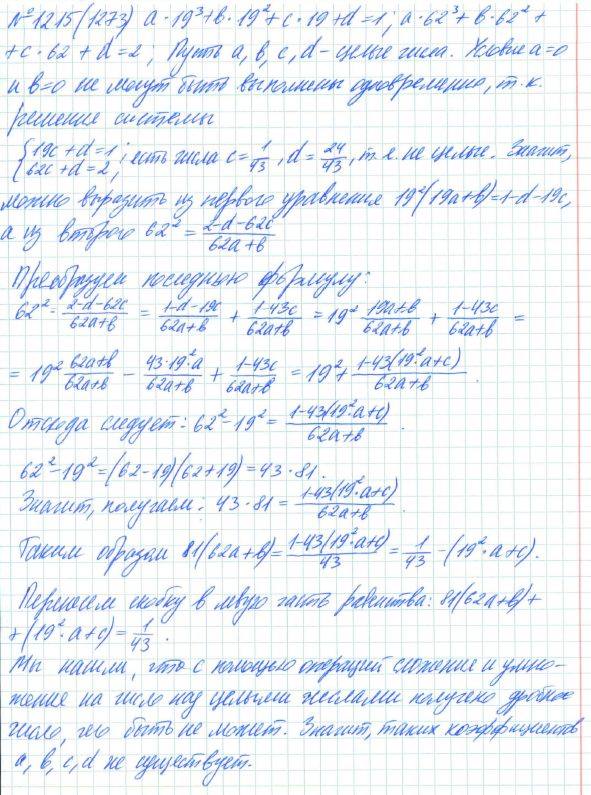 №1215(1273) a·19³+b·19²+c·19+d=1; a·62³+b·62²+
+c·62+d=2; Пусть a, b, c, d – целые числа. Условие a=0
и b=0 не могут быть выполнены одновременно, т.к.
решение системы
{19c+d=1; 62c+d=2; есть числа c=1/43, d=24/43, т.е. не целые. Значит,
можно выразить из первого уравнения 19²(19a+b)=1-d-19c,
а из второго 62²=(2-d-62c)/(62a+b)
Преобразуем последнюю формулу:
62²=(2-d-62c)/(62a+b)=(1-d-19c)/(62a+b)+(1-43c)/(62a+b)=19²(19a+b)/(62a+b)+(1-43c)/(62a+b)=
=19²(62a+b)/(62a+b)-(43·19²·a)/(62a+b)+(1-43c)/(62a+b)=19²+(1-43(19²·a+c))/(62a+b).
Отсюда следует: 62²-19²=(1-43(19²·a+c))/(62a+b).
62²-19²=(62-19)(62+19)=43·81.
Значит, получаем: 43·81=(1-43(19²·a+c))/(62a+b).
Таким образом 81(62a+b)=(1-43(19²·a+c))/43=1/43-(19²·a+c).
Переносем скобку в левую часть равенства: 81(62a+b)+
+(19²·a+c)=1/43.
Мы нашли, что с помощью операций сложения и умно-
жения на число над целыми числами получено дробное
число, чего быть не может. Значит, таких коэффициентов
a, b, c, d не существует.